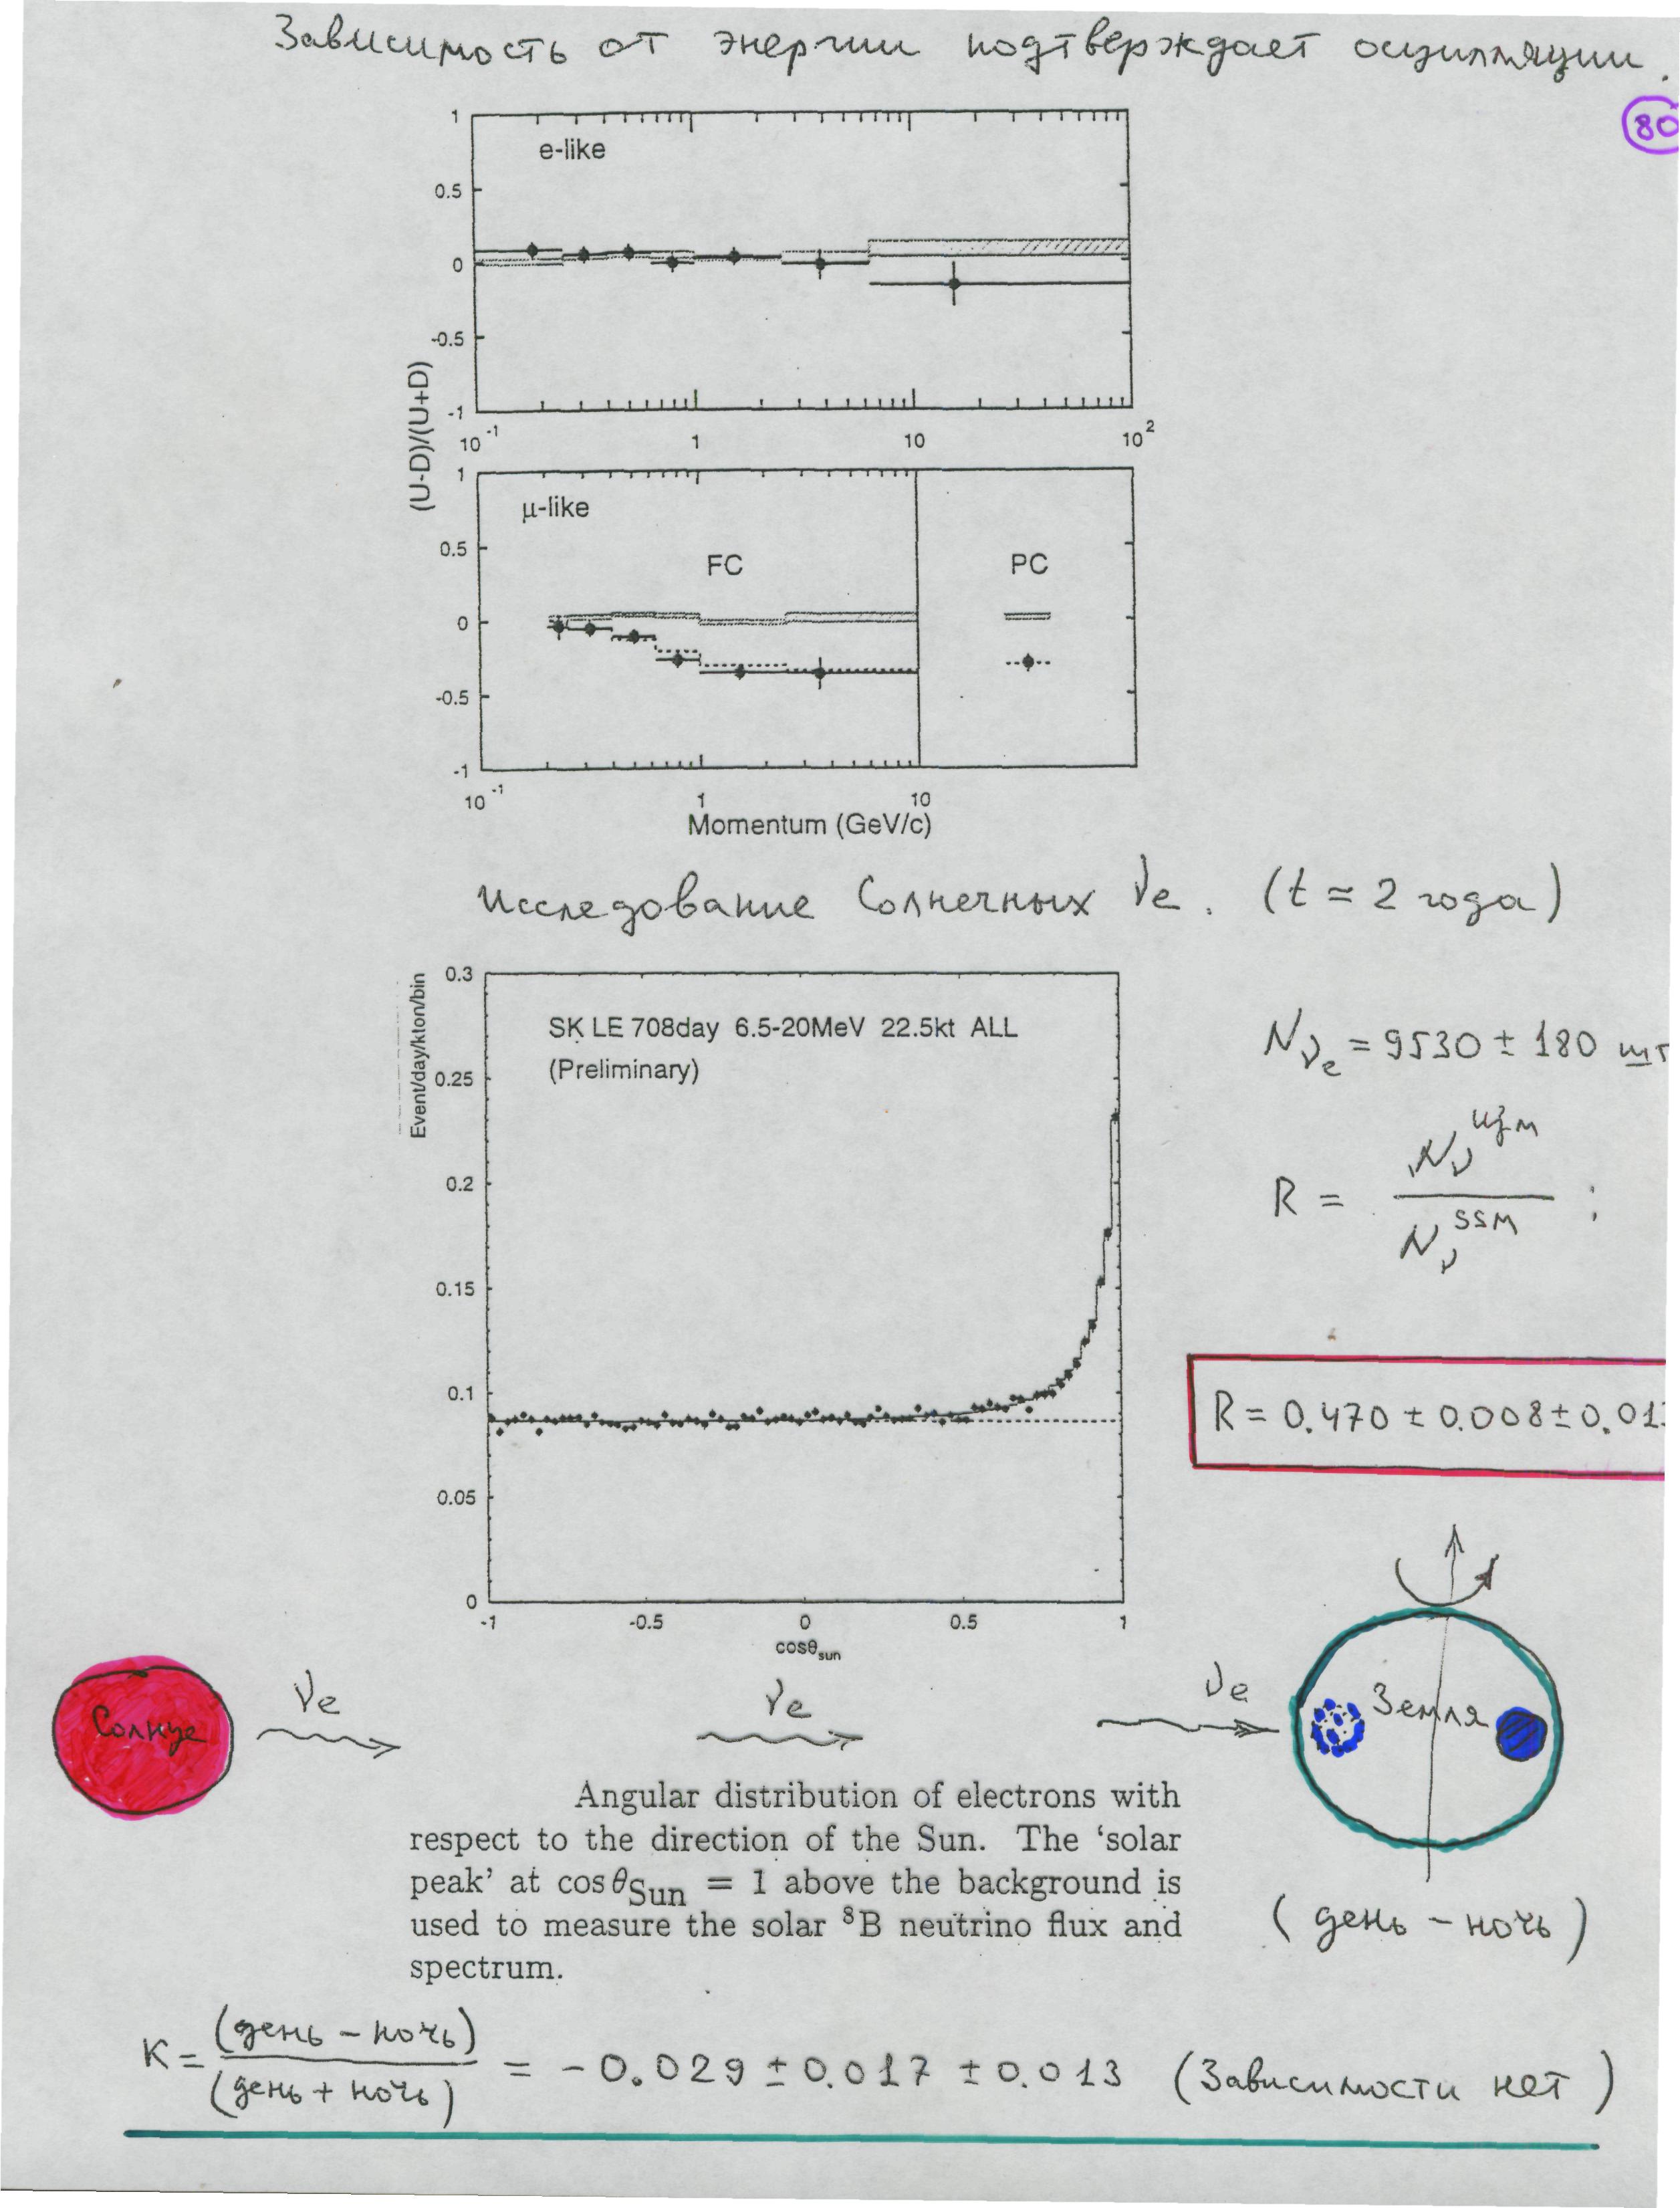 Зависимость от энергии подтверждает осцилляции.
80
e-like
1
0.5
0
-0.5
-1
10⁻¹ 1 10 10²
(U-D)/(U+D)
μ-like
FC PC
1
0.5
0
-0.5
-1
10⁻¹ 1 10
Momentum (GeV/c)
Исследование Солнечных νe. (t ≃ 2 года)
Event/day/kton/bin
SK LE 708day 6.5-20MeV 22.5kt ALL
(Preliminary)
0.3
0.25
0.2
0.15
0.1
0.05
0
-1 -0.5 0 0.5 1
cosθsun
Nνe = 9530 ± 180 шт
R = Nν^изм / Nν^SSM ;
R = 0.470 ± 0.008 ± 0.01
Солнце νe νe νe Земля
Angular distribution of electrons with
respect to the direction of the Sun. The ‘solar
peak’ at cos θSun = 1 above the background is
used to measure the solar ⁸B neutrino flux and
spectrum.
(день - ночь)
K = (день - ночь) / (день + ночь) = -0.029 ± 0.017 ± 0.013 (Зависимости нет)